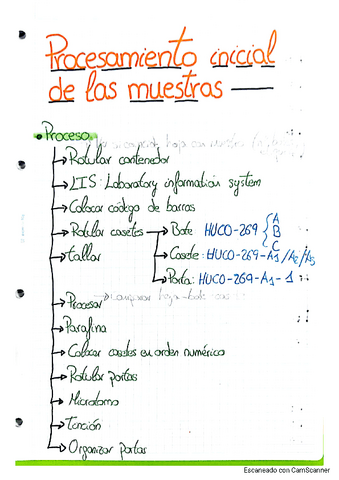 Procesamiento inicial
de las muestras
• Proceso
→ Rotular contenedor
→ LIS: Laboratory information system
→ Colocar código de barras
→ Rotular casetes → Bote HUCO-269 { A
B
C
→ tallar
→ Casete: HUCO-269-A1/A2/A3
→ Porta: HUCO-269-A1-1
→ Procesar
→ Parafina
→ Colocar casetes en orden numérico
→ Rotular portas
→ Microtomo
→ Tinción
→ Organizar portas
Escaneado con CamScanner